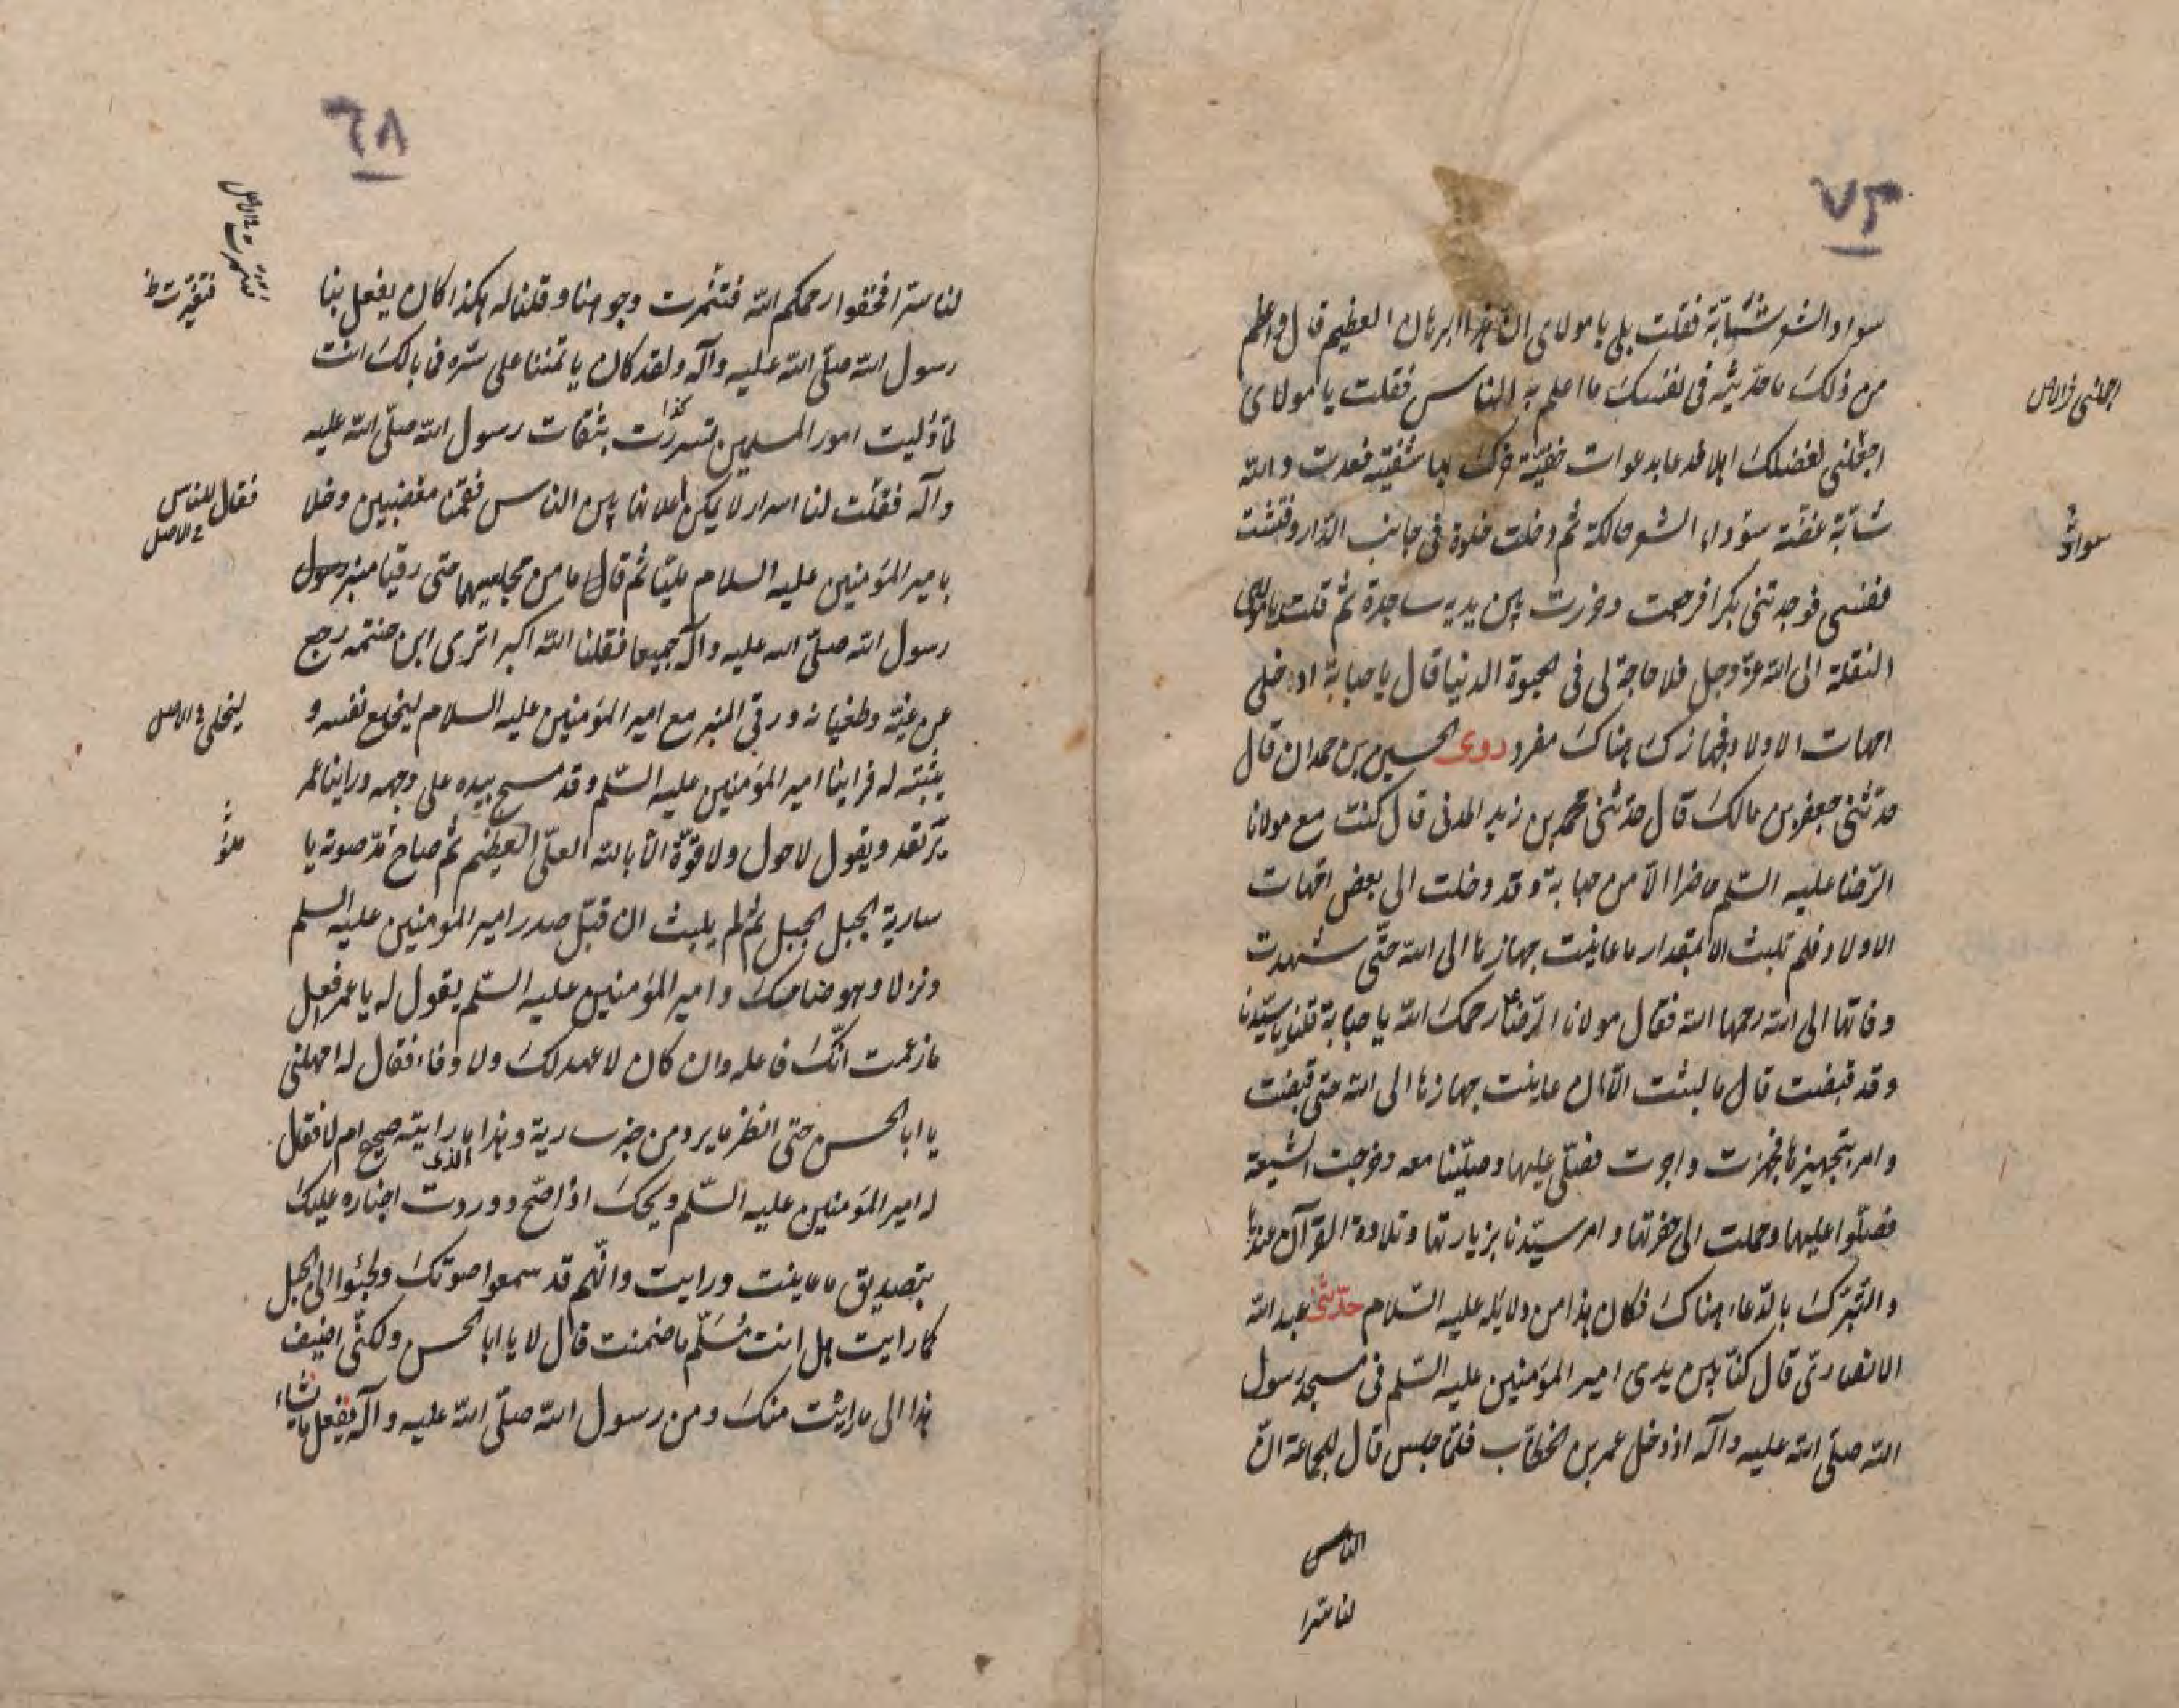 ٧٣
سواد الشعر شبابة فقلت بلى يا مولاى ان هذا البرهان العظيم قال واعظم
من ذلك ما حدثته فى نفسك ما اعلم به الناس فقلت يا مولاى
اجعلنى لفضلك اهلا فدعا بدعوات خفية حرك بها شفتيه فعدت والله
شابّة غضّة سوداء الشعر حالكة ثم دخلت خلوة فى جانب الدّار وفتشت
نفسى فوجدتنى بكرا فرجعت وخررت بين يديه ساجدة ثم قلت يا مولاى
النقلة الى الله عزّ وجل فلا حاجة لى فى الحيوة الدنيا قال يا حبابة ادخلى
امهات الاولاد فجهازك هناك مفرد روى الحسين بن حمدان قال
حدّثنى جعفر بن مالك قال حدّثنى محمد بن زيد المدنى قال كنت مع مولانا
الرّضا عليه السّلم حاضرا لأمر حبابة وقد دخلت الى بعض امّهات
الاولاد فلم تلبث الا بمقدار ما عاينت جهازها الى الله حتّى شهدت
وفاتها الى الله رحمها الله فقال مولانا الرّضا ع رحمك الله يا حبابة قلنا يا سيّدنا
وقد قبضت قال ما لبثت الّا ان عاينت جهازها الى الله حتى قبضت
وامر بتجهيزها فجهزت واخرجت فصلّى عليها وصلّينا معه وخرجت الشيعة
فصلّوا عليها وحملت الى حفرتها وامر سيّدنا بزيارتها وتلاوة القرآن عندها
والتّبرّك بالدّعاء هناك فكان هذا من دلايله عليه السّلام حدّثنى عبد الله
الانصارىّ قال كنّا بين يدى امير المؤمنين عليه السّلم فى مسجد رسول
الله صلّى الله عليه وآله اذ دخل عمر بن الخطّاب فلمّا جلس قال للجماعة انّ
لنا سرّا
اجعلنى فى الاصل
سواد
٦٨
لنا سرّا فخففوا رحمكم الله فتشمرت وجوهنا وقلنا له هكذا كان يفعل بنا
رسول الله صلّى الله عليه وآله ولقد كان ياتمننا على سرّه فما بالك انت
لمّا وليت امور المسلمين تسررت كذا بثقات رسول الله صلّى الله عليه
وآله فقلت لنا اسرار لا يمكن اعلانها بين الناس فقمنا مغضبين وخلا
بامير المؤمنين عليه السلام مليّا ثم قاما من مجلسيهما حتى رقيا منبر رسول
رسول الله صلّى الله عليه وآله جميعا فقلنا الله اكبر اترى ابن حنتمة رجع
عن غيّه وطغيانه ورقى المنبر مع امير المؤمنين عليه السلام ليخلع نفسه و
يثبته له فراينا امير المؤمنين عليه السّلم وقد مسح بيده على وجهه وراينا عمر
يرتعد ويقول لا حول ولا قوّة الّا بالله العلىّ العظيم ثم صاح ملأ صوته يا
سارية الجبل الجبل ثم لم يلبث ان قبّل صدر امير المؤمنين عليه السلم
ونزلا وهو ضاحك وامير المؤمنين عليه السّلم يقول له يا عمر افعل
ما زعمت انّك فاعله وان كان لا عهد لك ولا وفاء فقال له امهلنى
يا ابا الحسن حتى انظر ما يرد من خبر سارية وهذا الذى رايته صحيح ام لا فقال
له امير المؤمنين عليه السّلم ويحك اذا صحّ ووردت اخباره عليك
بتصديق ما عاينت ورايت وانّهم قد سمعوا صوتك ولجئوا الى الجبل
كما رايت هل انت مسلّم ما ضمنت قال لا يا ابا الحسن ولكنّى اضيف
هذا الى ما رايت منك ومن رسول الله صلّى الله عليه وآله يفعل ما يشاء
فتغيرت ظ
فقال للناس فى الاصل
ليتخلى فى الاصل